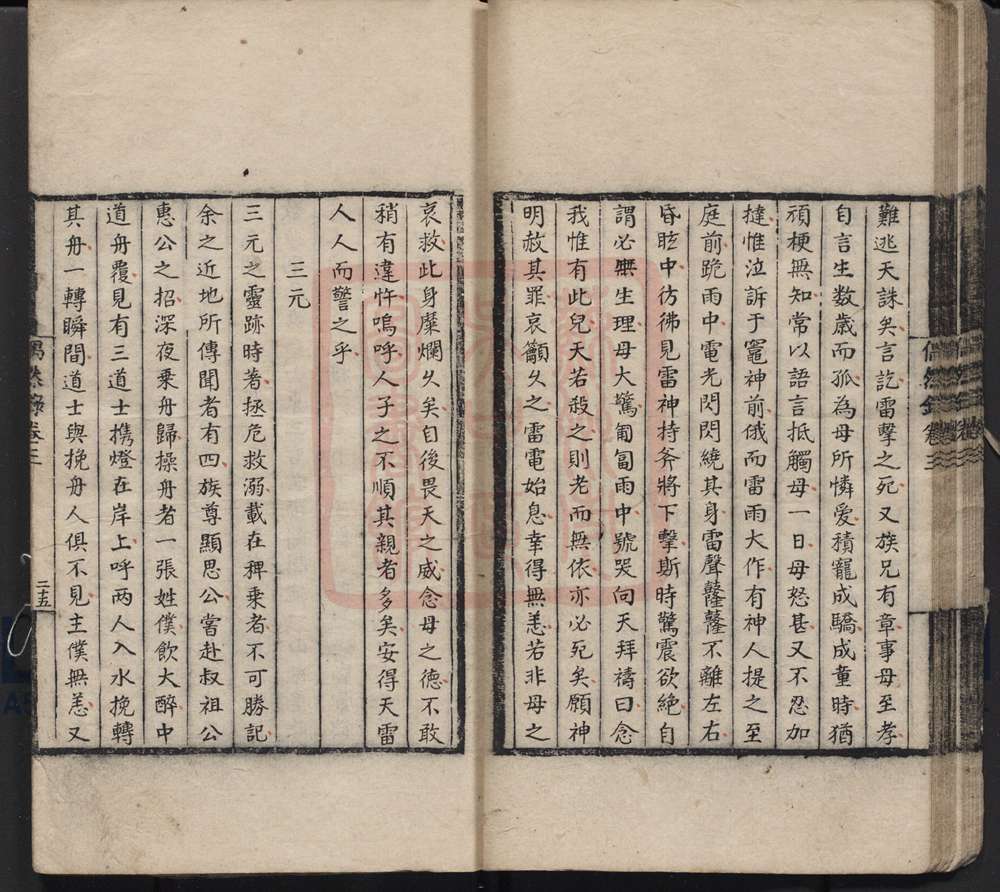 難逃天誅矣言訖雷擊之死又族兄有章事母至孝
自言生数歲而孤為母所憐愛積寵成驕成童時猶
頑梗無知常以語言抵觸母一日母怒甚又不忍加
撻惟泣訴于竈神前俄而雷雨大作有神人提之至
庭前跪雨中電光閃閃繞其身雷聲虩虩不離左右
昏眩中彷彿見雷神持斧將下擊斯時驚震欲絶自
謂必無生理母大驚匍匐雨中號哭向天拜禱曰念
我惟有此兒天若殺之則老而無依亦必死矣願神
明赦其罪哀籲久之雷電始息幸得無恙若非母之
哀救此身糜爛久矣自後畏天之威念母之德不敢
稍有違忤嗚呼人子之不順其親者多矣安得天雷
人人而警之乎
三元
三元之靈跡時著拯危救溺載在稗乘者不可勝記
余之近地所傳聞者有四族尊顯思公嘗赴叔祖公
惠公之招深夜乘舟歸操舟者一張姓僕飲大醉中
道舟覆見有三道士携燈在岸上呼两人入水挽轉
其舟一轉瞬間道士與挽舟人俱不見主僕無恙又
偶然錄卷三
二十五